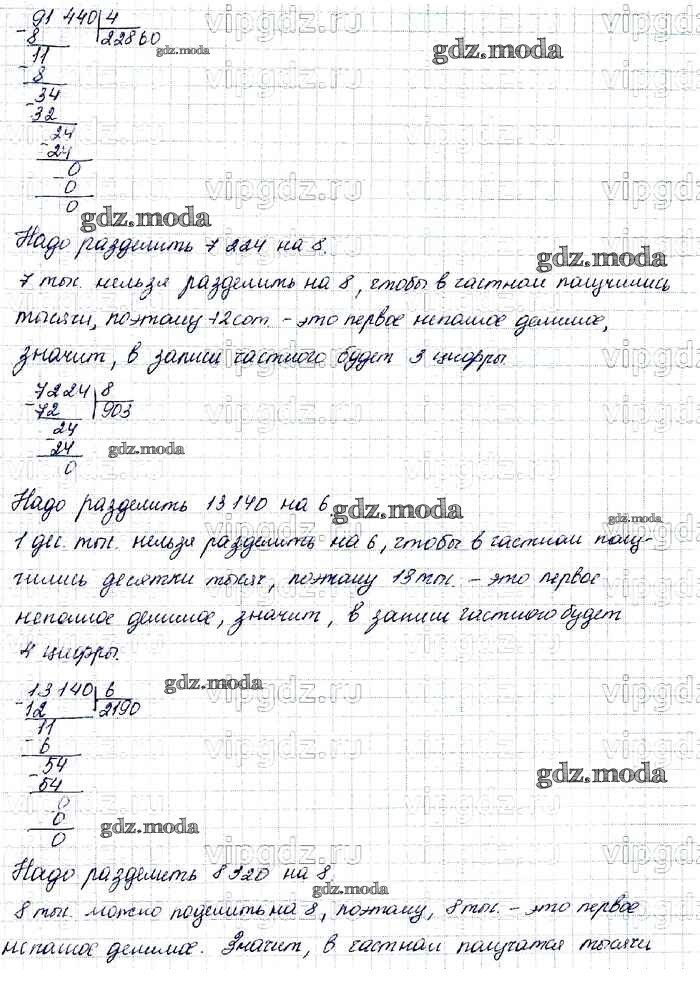 91 440 | 4
8 | 22860
11
8
34
32
24
24
0
0
0
Надо разделить 7 224 на 8.
7 тыс. нельзя разделить на 8, чтобы в частном получились
тысячи, поэтому 72 сот. - это первое неполное делимое,
значит, в записи частного будет 3 цифры.
7224 | 8
72 | 903
24
24
0
Надо разделить 13 140 на 6.
1 дес. тыс. нельзя разделить на 6, чтобы в частном полу-
чились десятки тысяч, поэтому 13 тыс. - это первое
неполное делимое, значит, в записи частного будет
4 цифры.
13 140 | 6
12 | 2190
11
6
54
54
0
0
0
Надо разделить 8 320 на 8.
8 тыс. можно поделить на 8, поэтому, 8 тыс. - это первое
неполное делимое. Значит, в частном получатся тысячи
gdz.moda
vipgdz.ru